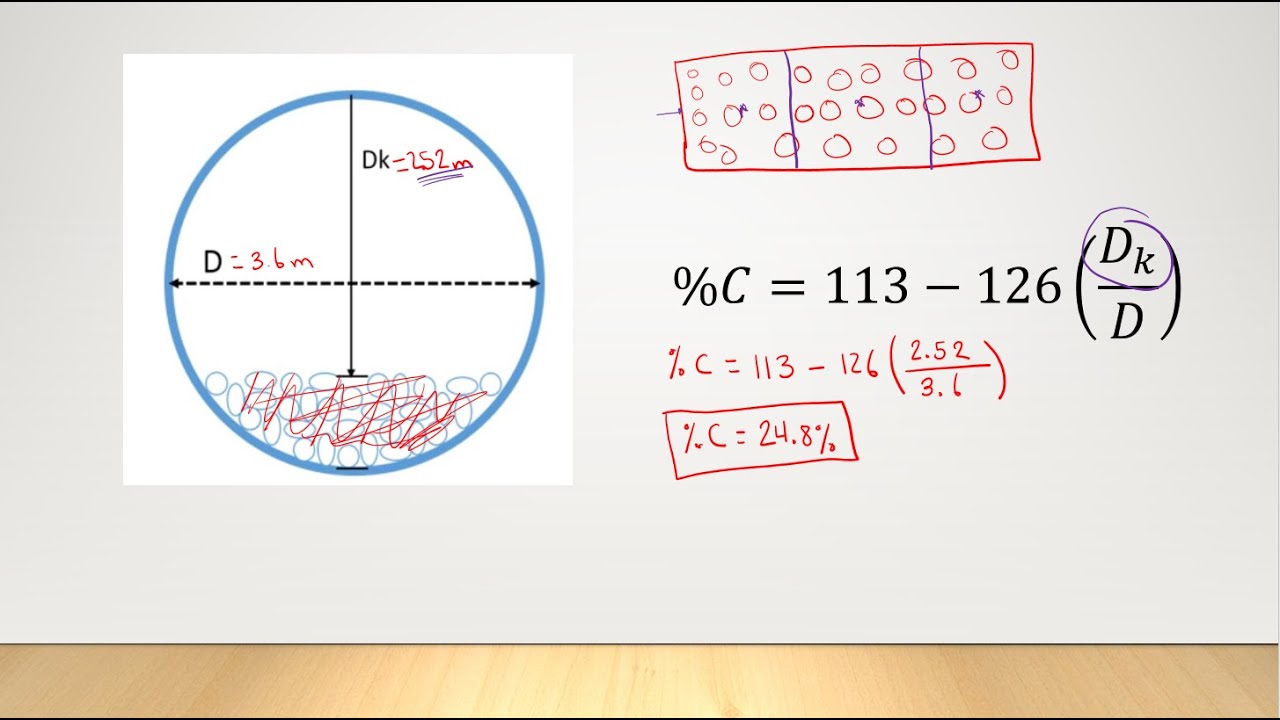 Dk = 2.52 m
D = 3.6 m
%C = 113 − 126 (D_k / D)
% C = 113 − 126 (2.52 / 3.6)
% C = 24.8%